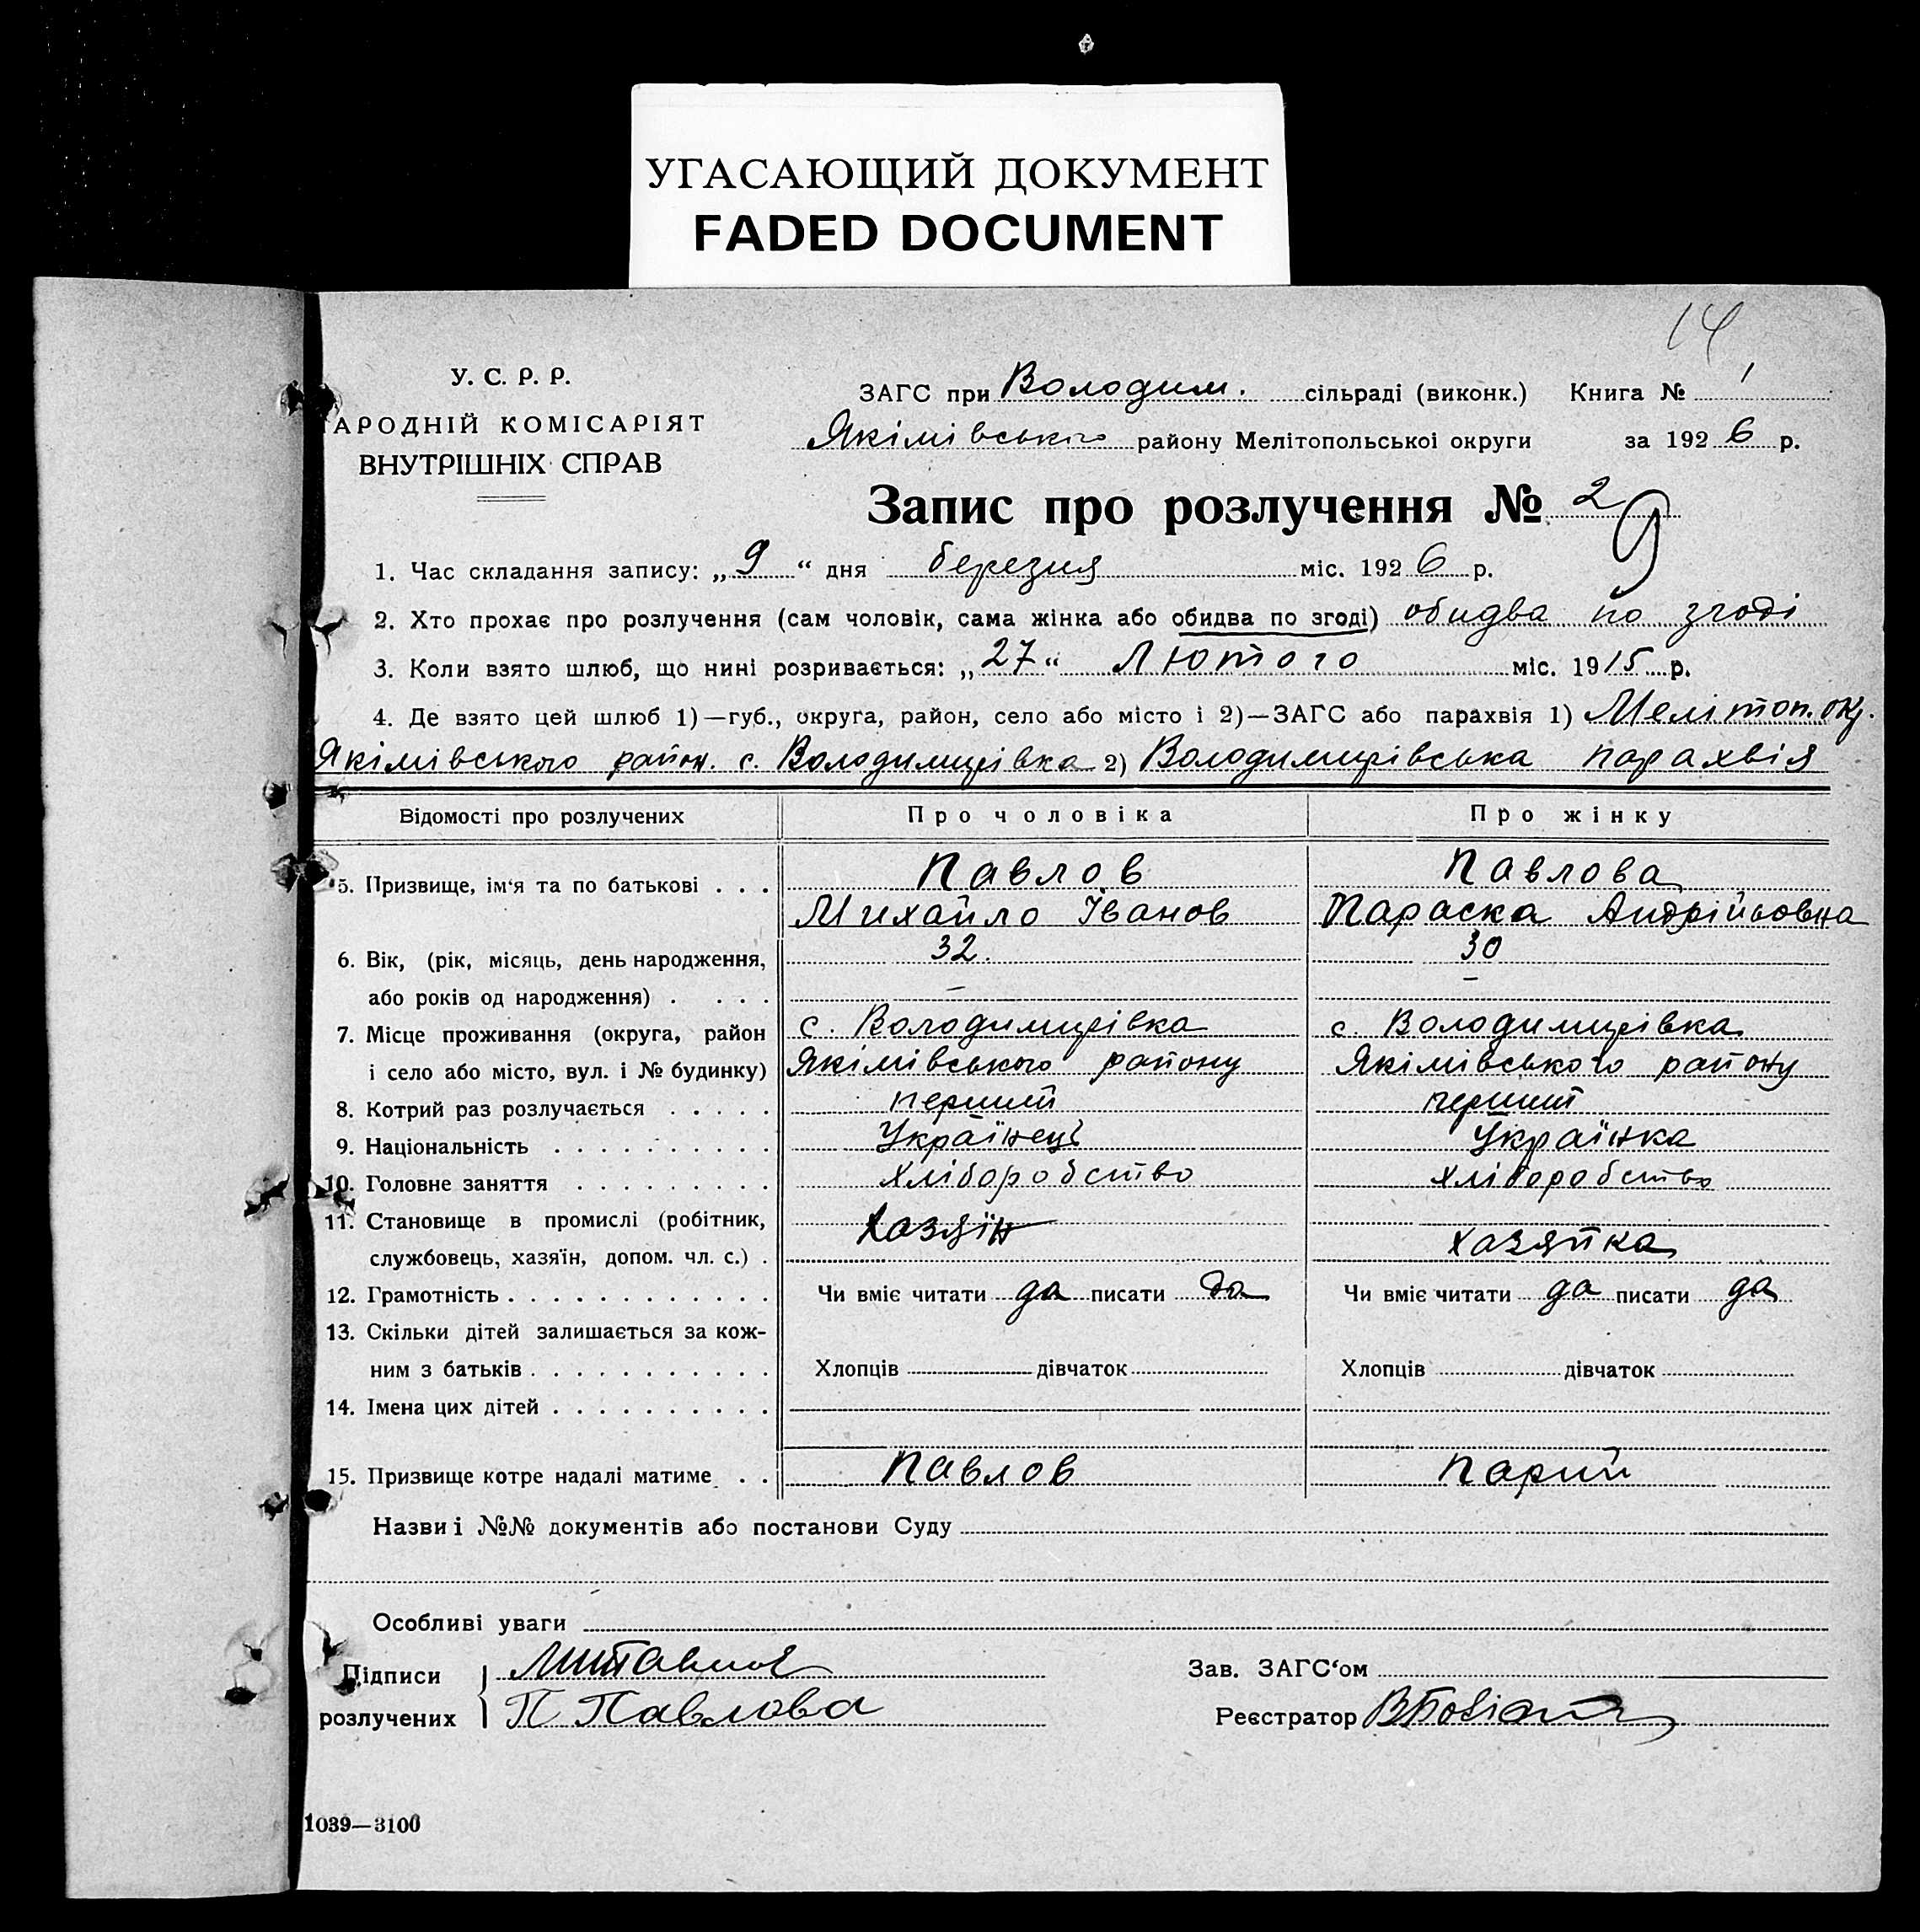 УГАСАЮЩИЙ ДОКУМЕНТ
FADED DOCUMENT
14
У. С. Р. Р.
АРОДНІЙ КОМІСАРІЯТ
ВНУТРІШНІХ СПРАВ
ЗАГС при Володим. сільраді (виконк.) Книга № 1
Якімівського району Мелітопольської округи за 1926 р.
Запис про розлучення № 2
9
1. Час складання запису: „9“ дня березня міс. 1926 р.
2. Хто прохає про розлучення (сам чоловік, сама жінка або обидва по згоді) обидва по згоді
3. Коли взято шлюб, що нині розривається: „27“ Лютого міс. 1915 р.
4. Де взято цей шлюб 1)—губ., округа, район, село або місто і 2)—ЗАГС або парахвія 1) Мелітоп. окр.
Якімівського район. с. Володимирівка 2) Володимирівська парахвія
Відомості про розлучених Про чоловіка Про жінку
5. Призвище, ім‘я та по батькові . . . Павлов Павлова
Михайло Іванов Параска Андрійовна
6. Вік, (рік, місяць, день народження, 32. 30
або років од народження) . . . . – –
7. Місце проживання (округа, район с. Володимирівка с. Володимирівка
і село або місто, вул. і № будинку) Якімівського району Якімівського району
8. Котрий раз розлучається . . . . . перший перший
9. Національність . . . . . . . . . . Українець Українка
10. Головне заняття . . . . . . . . . хліборобство хліборобство
11. Становище в промислі (робітник, Хазяїн
службовець, хазяїн, допом. чл. с.) . хазяйка
12. Грамотність . . . . . . . . . . . . Чи вміє читати да писати да Чи вміє читати да писати да
13. Скільки дітей залишається за кож-
ним з батьків . . . . . . . . . . . Хлопців дівчаток Хлопців дівчаток
14. Імена цих дітей . . . . . . . . . .
15. Призвище котре надалі матиме . . Павлов Парий
Назви і №№ документів або постанови Суду
Особливі уваги
Підписи Зав. ЗАГС‘ом
розлучених П Павлова Реєстратор
1039—3100